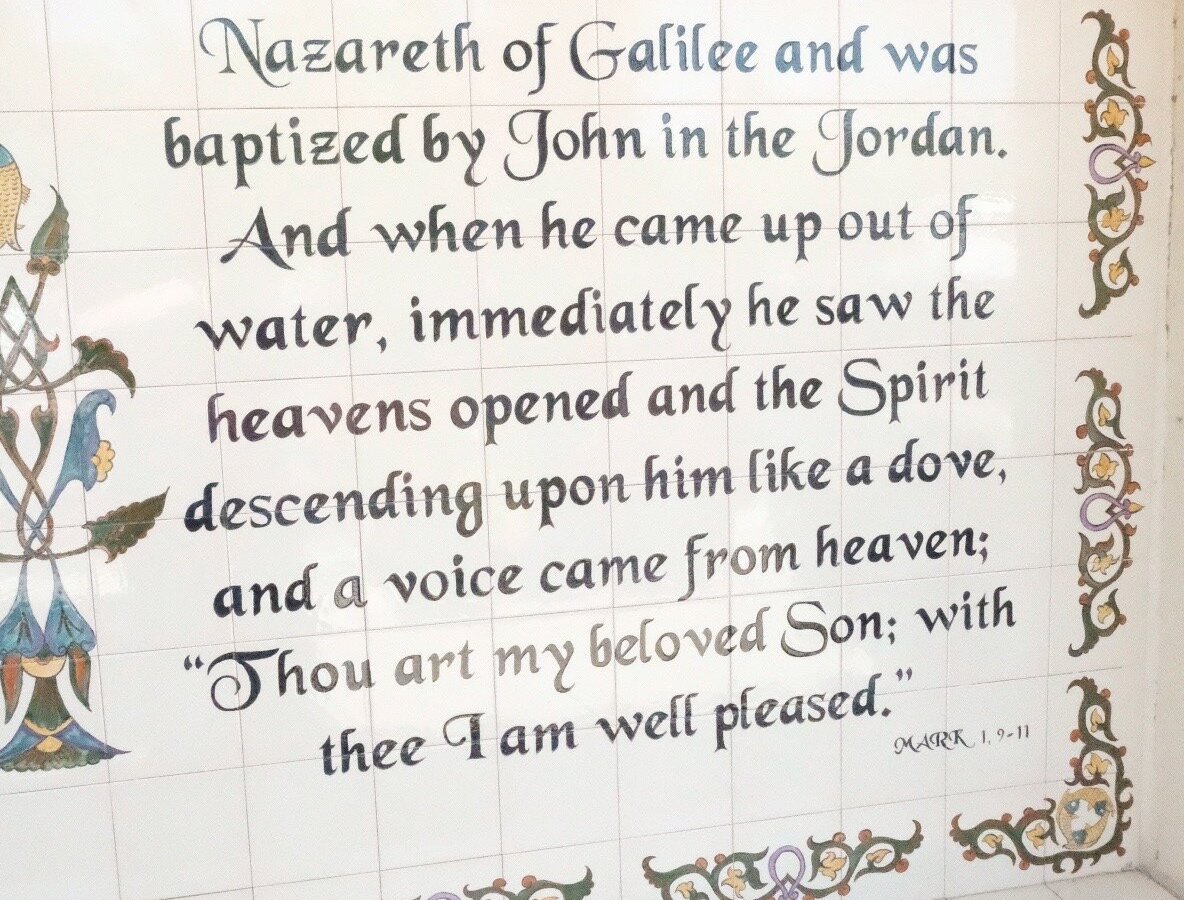 Nazareth of Galilee and was
baptized by John in the Jordan.
And when he came up out of
water, immediately he saw the
heavens opened and the Spirit
descending upon him like a dove,
and a voice came from heaven;
“Thou art my beloved Son; with
thee I am well pleased.”
MARK 1, 9-11